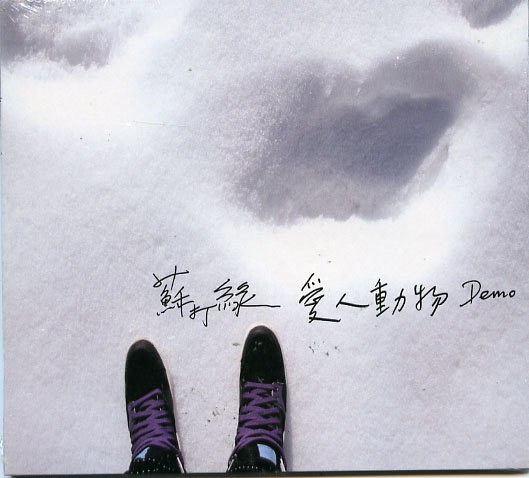 蘇打綠 愛人動物 Demo